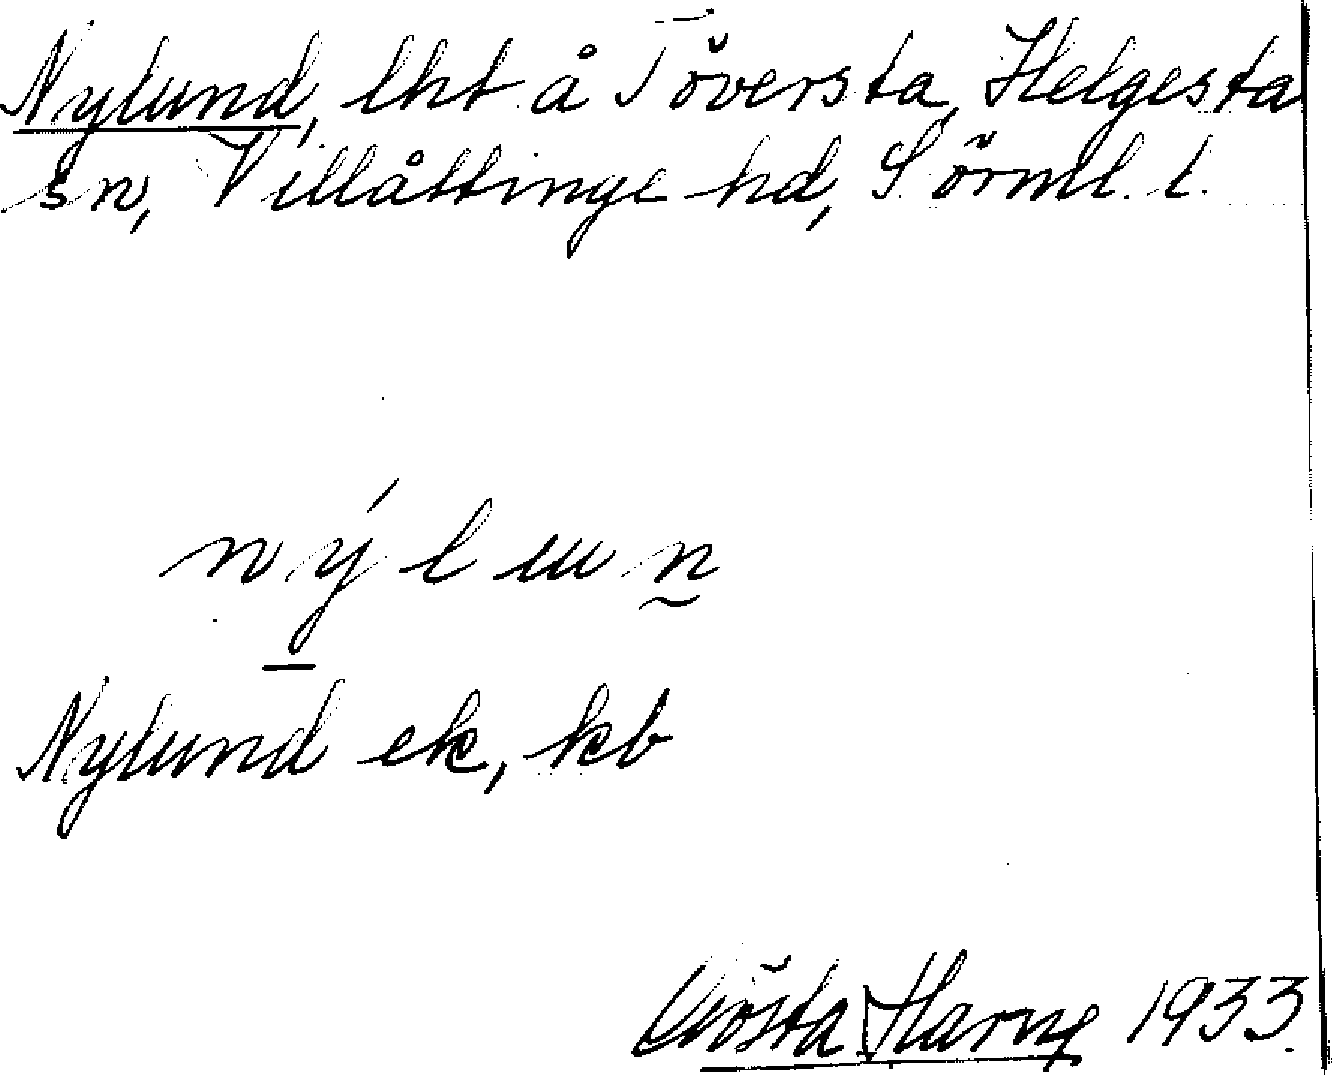 Nylund, lht å Töversta, Helgesta
sn, Villåttinge hd, Sörml. l.
nýlun
Nylund ek, kb
Gösta Harng 1933.